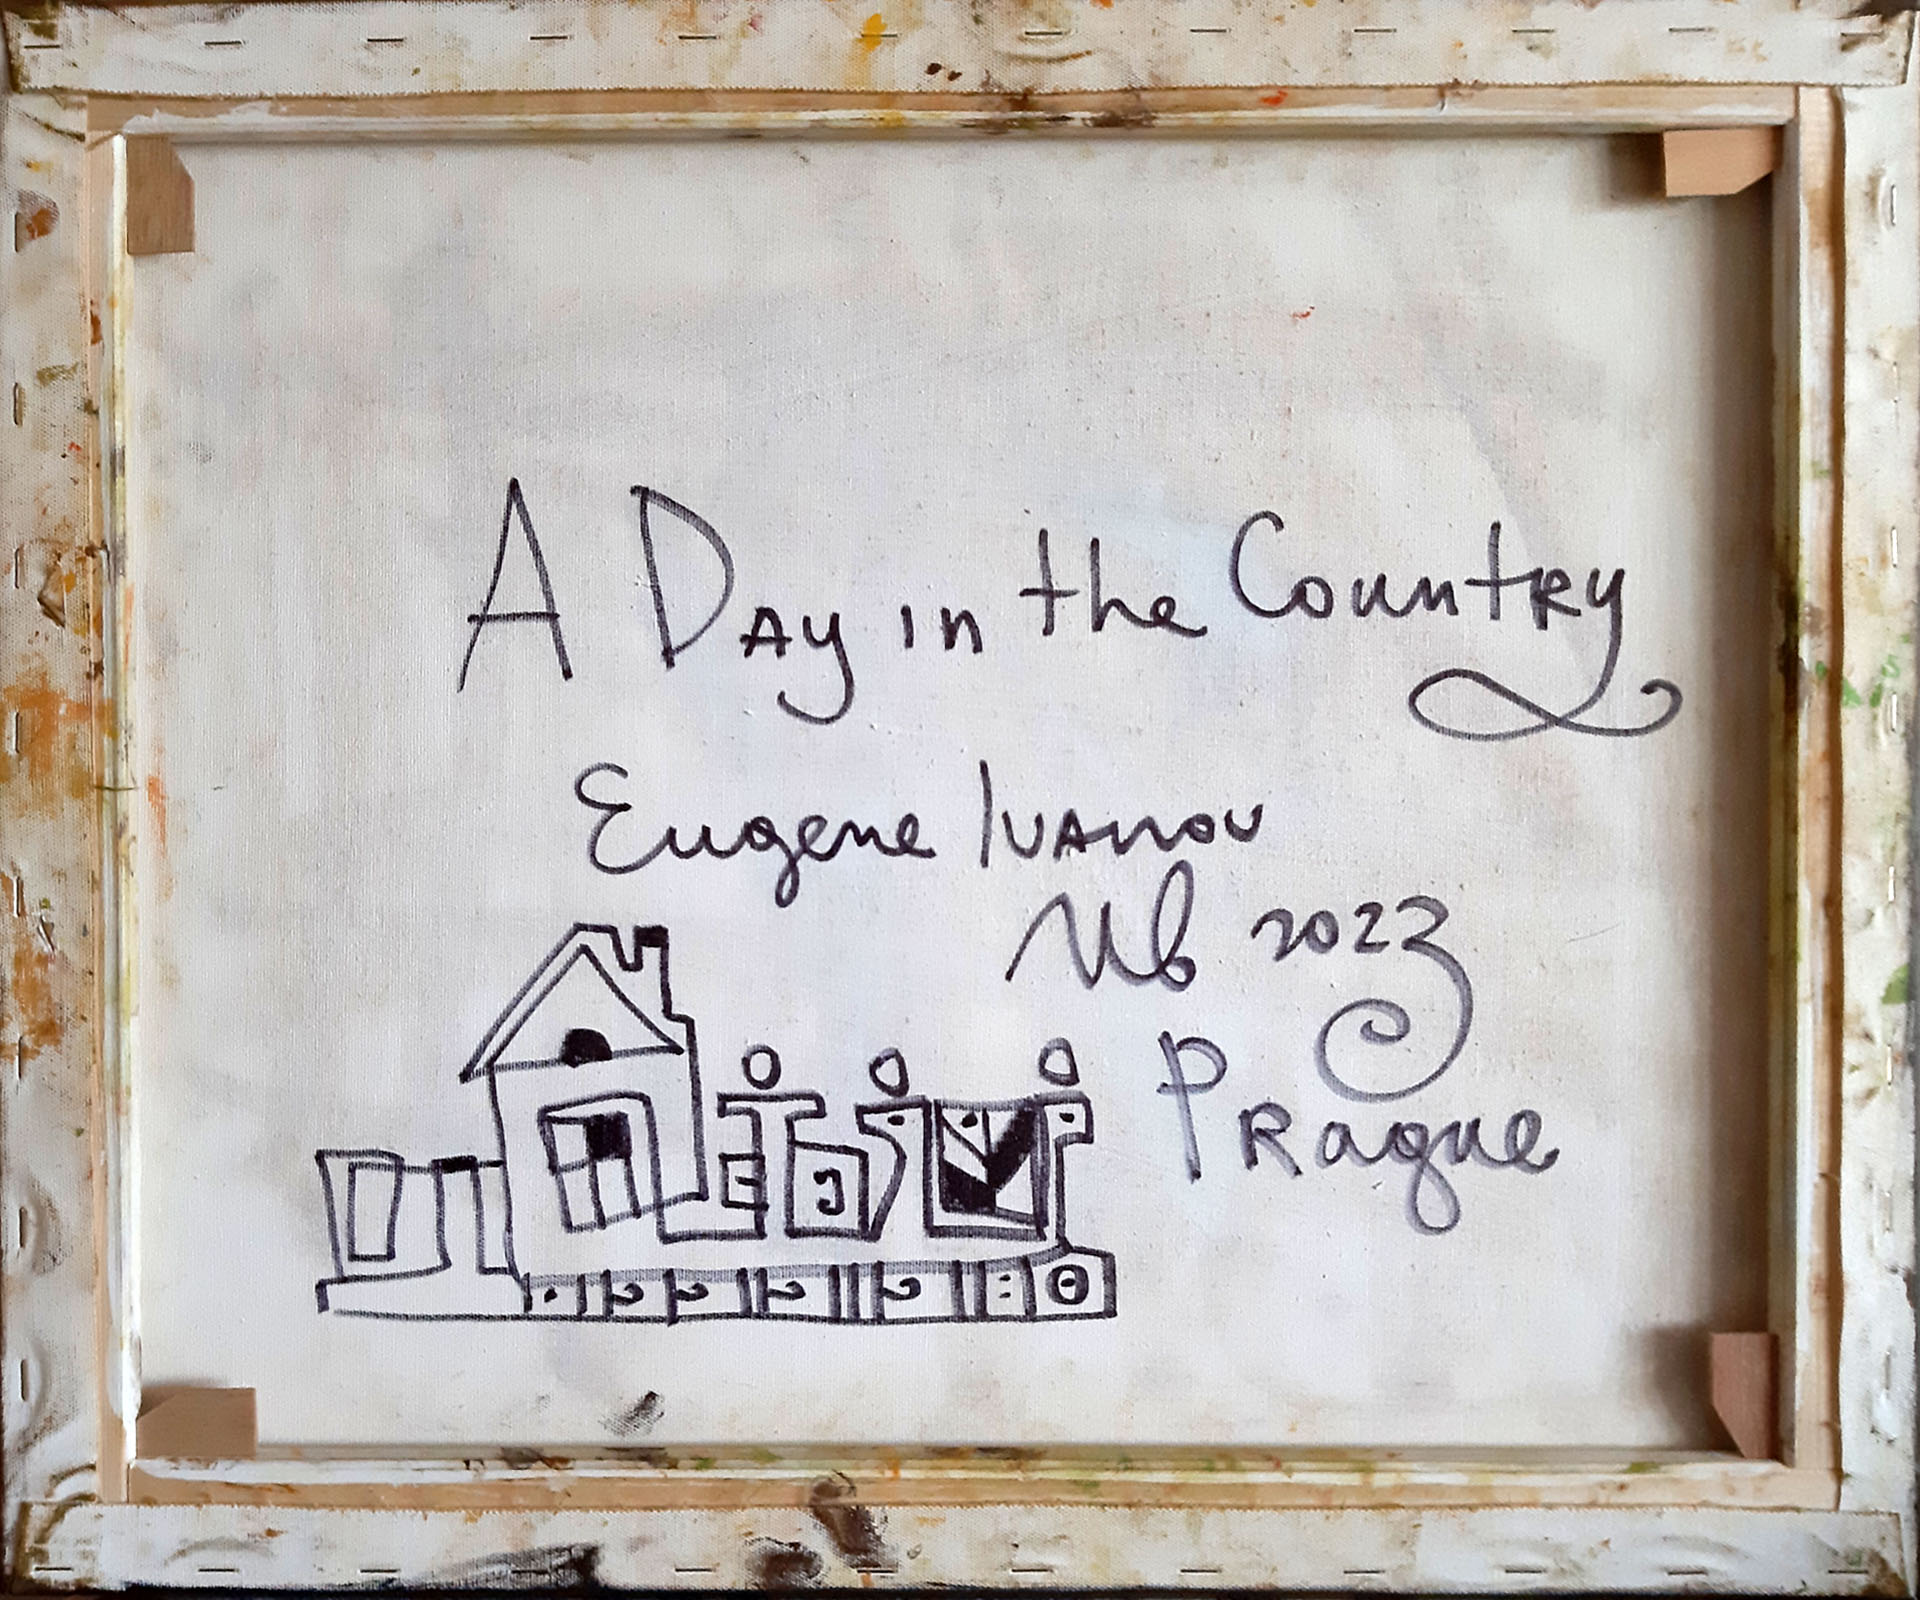 A Day in the Country
Eugene Ivanov
Ив 2023
Prague